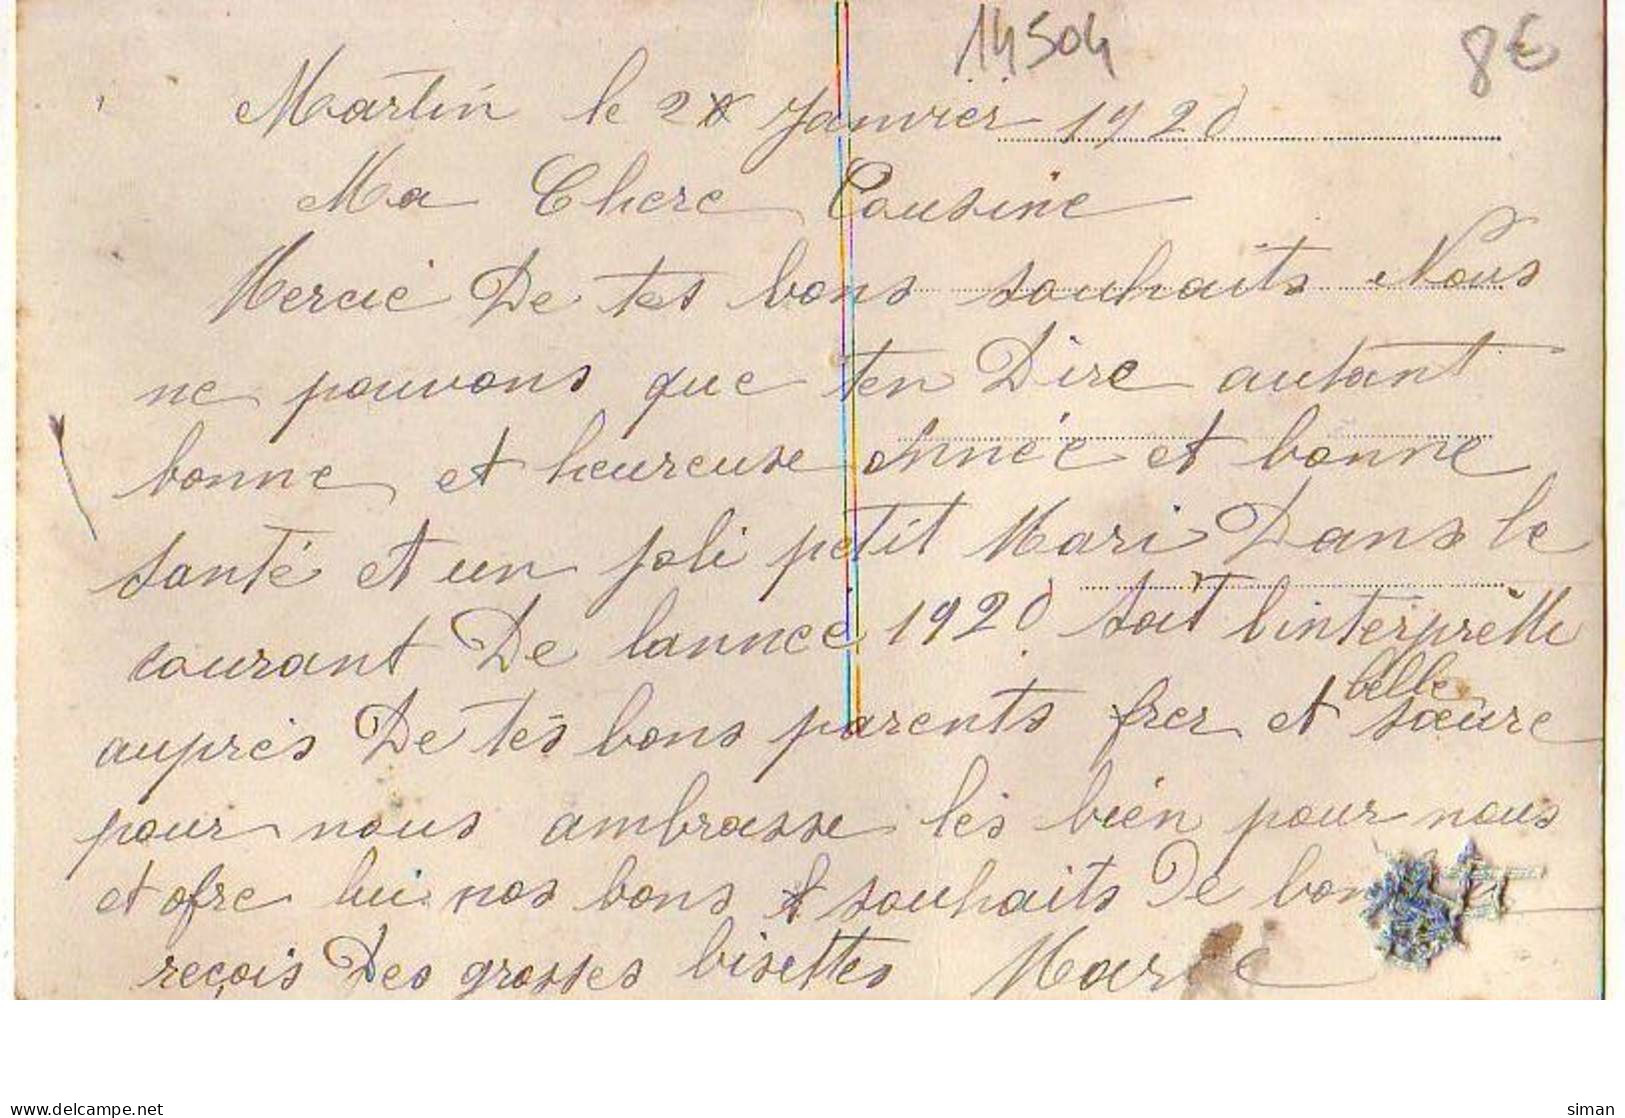 14504
8€
Martin le 2 Janvier 1920
Ma Chere Cousine
Mercie De tes bons souhaits Nous
ne pouvons que ten Dire autant
bonne et heureuse Année et bonne
santé et un joli petit Mari Dans le
courant De lanneé 1920 soit l'interprette
auprès De tes bons parents frer et belle soeure
pour nous ambrasse lès bien pour nous
et ofre lui nos bons souhaits De
reçois Des grosses bisettes Marie
delcampe.net
siman